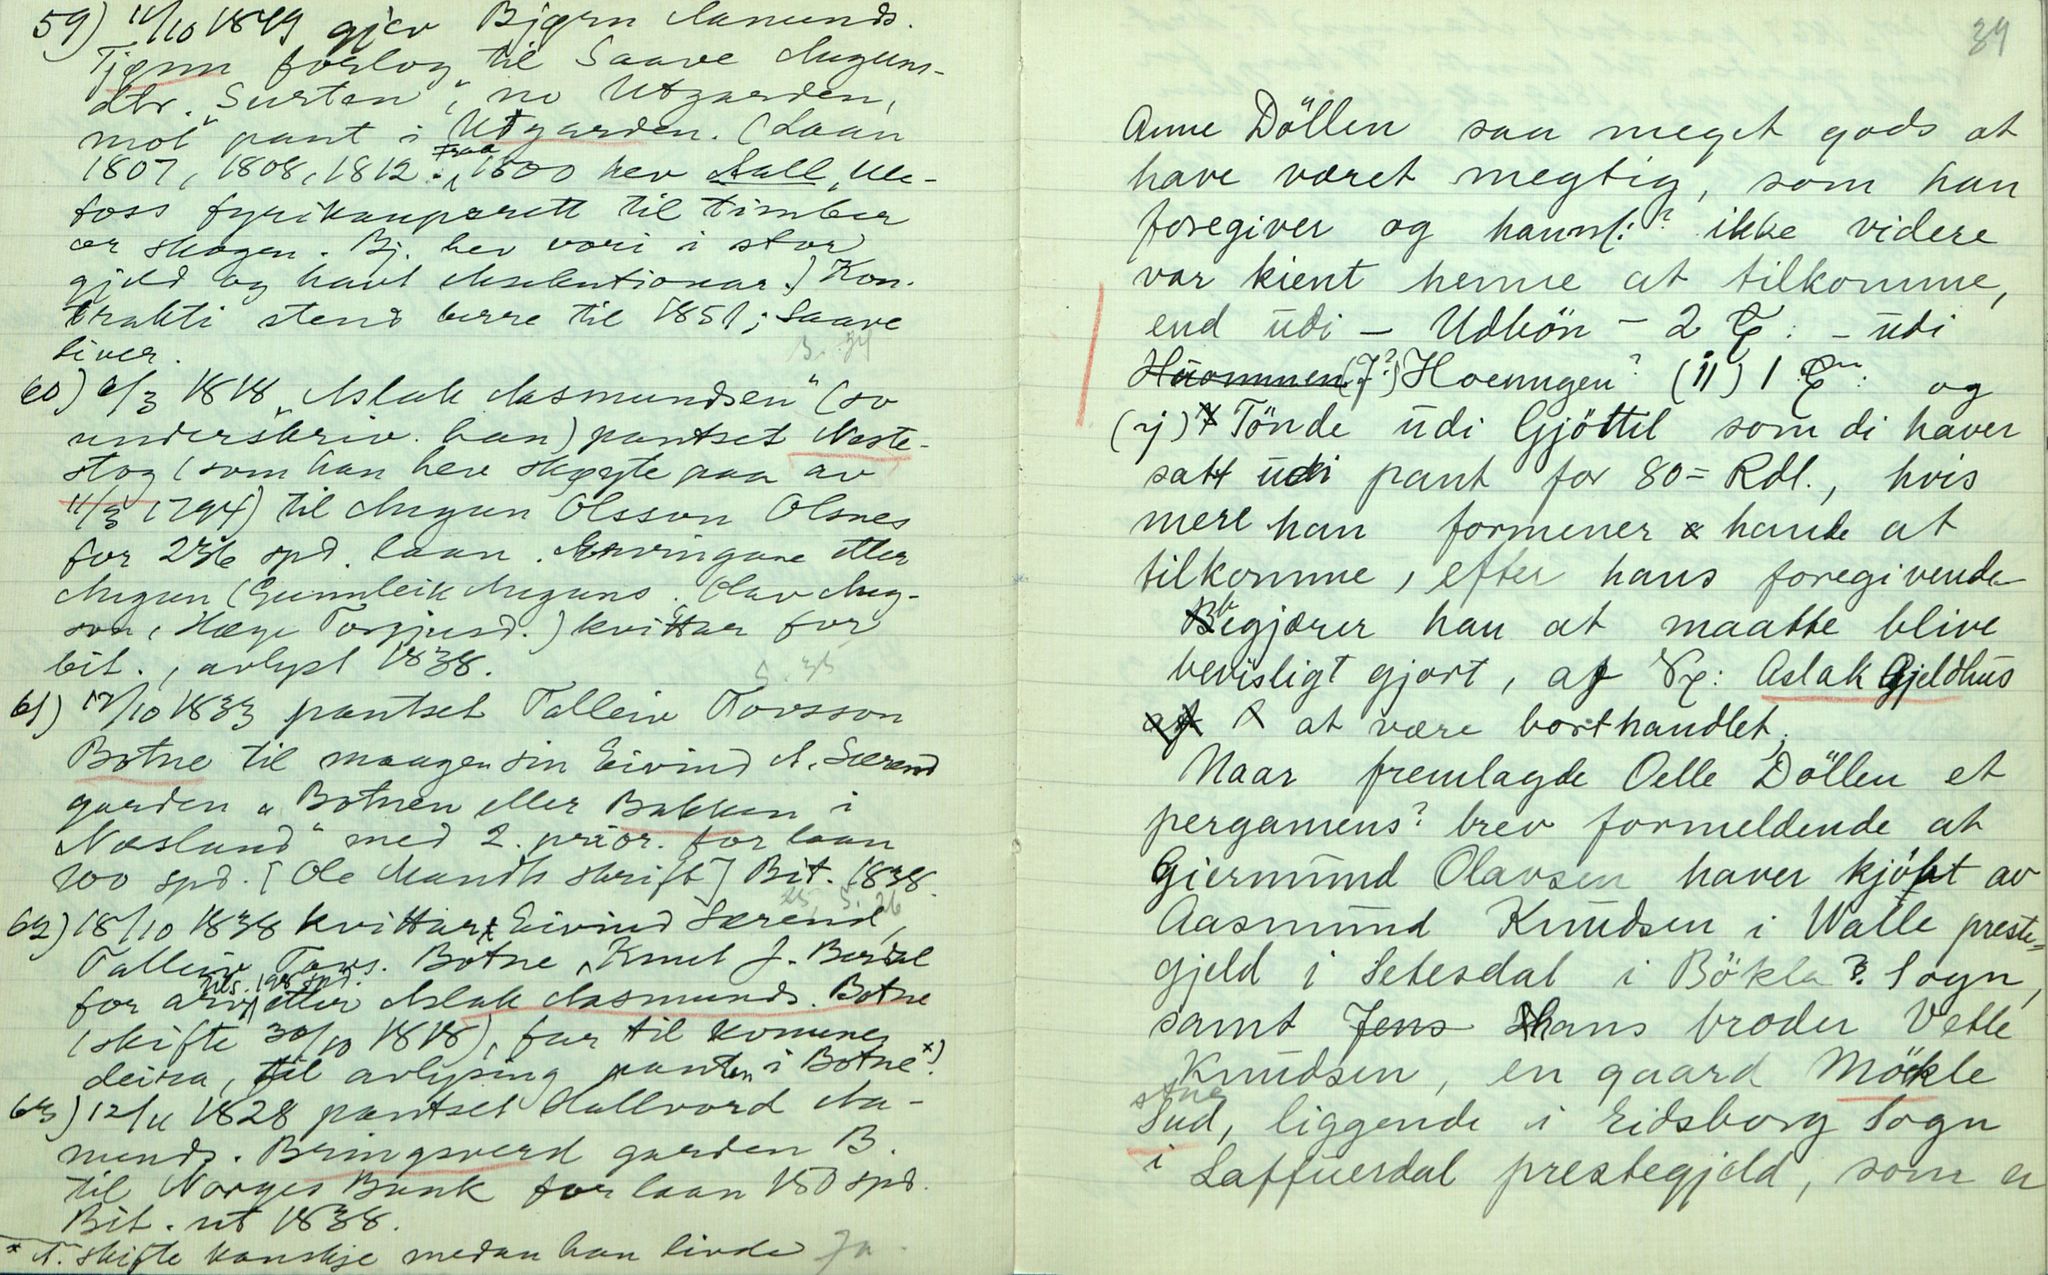 59) 11/10 1849 gjev Bjørn Aamunds.
Tjønn forlog til Saave Auguns-
dtr. "Surten", no Utgarden,
mot pant i Utgarden. (Laan
1807, 1808, 1812. Fraa 1800 hev Aall, Ule-
foss fyrikauparett til timber
or skogen. Bj. hev vori i stor
gjeld og havt Auksutionar.) Kon-
trakti stend berre til 1851; Saave
liver.
B. 34
60) 6/3 1818 "Aslak Aasmundsen" (so
underskriv. han) pantset Neste-
stog (som han hev skøyte paa av
11/3 1794) til Augun Olsson Olsnes
for 236 spd. laan. Ervingane etter
Augun (Gunnleik Auguns. Olav Aug-
son, Hæge Torgjusd.) kvittar for
bit., avlyst 1838.
S. 35
61) 17/10 1833 pantset Talleiv Tovsson
Botne til maagen sin Eivind A. Særend
garden "Botnen eller Bakken i
Næsland" med 2. prior. for laan
200 spd. [Ole Mandts skrift] Bit. 1838.
25, S. 26
62) 18/10 1838 kvittar Eivind Særend,
Talleiv Tovs. Botne, Knut J. Berdal
for arv tils. 198 spd. etter Aslak Aasmunds. Botne
(skifte 30/10 1818), far til konune
deira, til avlysing panten i Botne x).
63) 12/11 1828 pantset Hallvord Aa-
munds. Bringsverd garden B.
til Norges Bank for laan 150 spd.
Bit. ut 1838.
* A. skifte kanskje medan han livde Ja.
39
Anne Döllen saa meget gods at
have været megtig, som han
foregiver og haunl:? ikke videre
var kient henne at tilkomme,
end udi – Udbön – 2 : – udi
Huommen (J?) Hoenngen? (ij) 1 : og
(ij) Tönde udi Gjöttil som di haver
satt udi pant for 80= Rdl., hvis
mere han formener hande at
tilkomme, efter hans foregivende
Begjærer han at maatte blive
bevisligt gjort, af : Aslak Gjeldhus
af at være borthandlet.
Naar fremlagde Oelle Döllen et
pergamens? brev formeldende at
Giermund Olavsen haver kjöbt av
Aasmund Knudsen i Walle preste-
gjeld i Setesdal i Bökla? Sogn,
samt Jens hans broder Vetle
Knudsen, en gaard Möckle
stue
Sud, liggende i Eidsborg Sogn
i Laffuerdal prestegjeld, som er